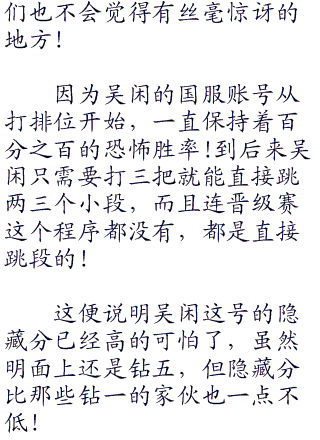 们也不会觉得有丝毫惊讶的
地方!
因为吴闲的国服账号从
打排位开始，一直保持着百
分之百的恐怖胜率!到后来吴
闲只需要打三把就能直接跳
两三个小段，而且连晋级赛
这个程序都没有，都是直接
跳段的!
这便说明吴闲这号的隐
藏分已经高的可怕了，虽然
明面上还是钻五，但隐藏分
比那些钻一的家伙也一点不
低!